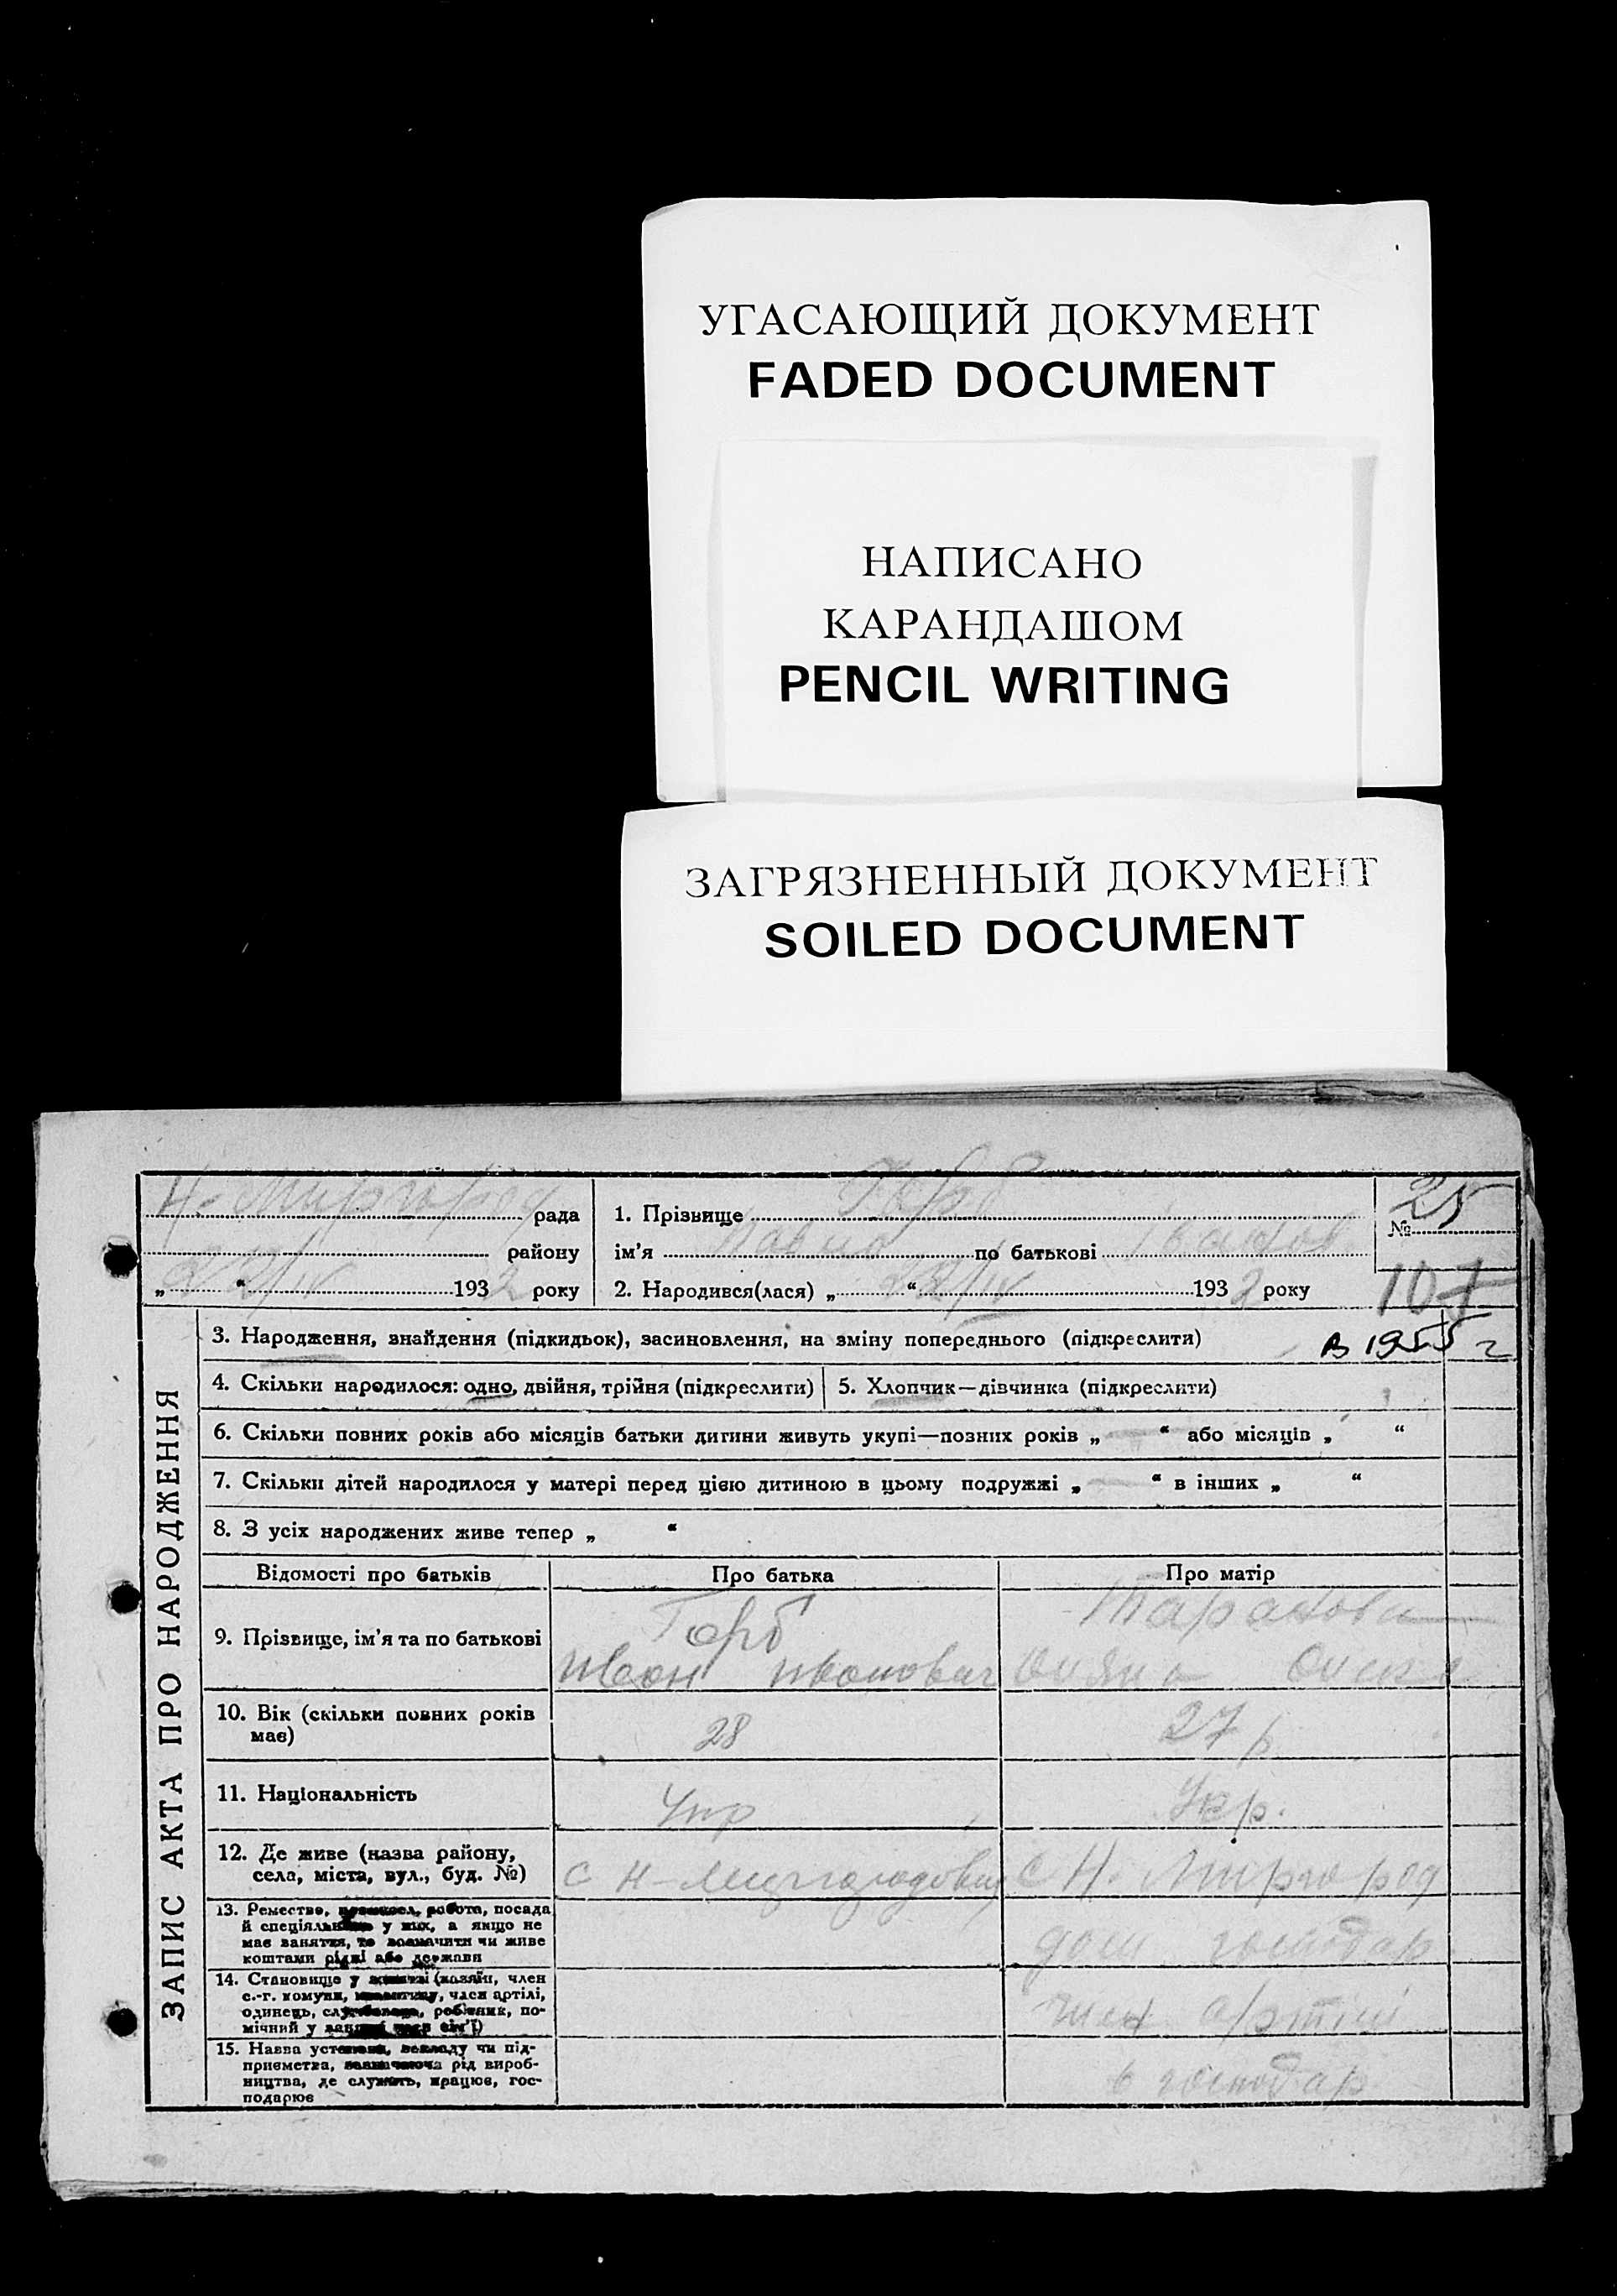 УГАСАЮЩИЙ ДОКУМЕНТ
FADED DOCUMENT
НАПИСАНО
КАРАНДАШОМ
PENCIL WRITING
ЗАГРЯЗНЕННЫЙ ДОКУМЕНТ
SOILED DOCUMENT
ЗАПИС АКТА ПРО НАРОДЖЕННЯ
Н. Миргород рада
району
„22/IV“ 1932 року
1. Прізвище Горб
ім'я Павло по батькові Іванов
2. Народився(лася) „22/IV“ 1932 року
№ 25
107
в 1955 г
3. Народження, знайдення (підкидьок), засиновлення, на зміну попереднього (підкреслити)
4. Скільки народилося: одно, двійня, трійня (підкреслити)
5. Хлопчик—дівчинка (підкреслити)
6. Скільки повних років або місяців батьки дитини живуть укупі—повних років „ — “ або місяців „ “
7. Скільки дітей народилося у матері перед цією дитиною в цьому подружжі „ — “ в інших „ “
8. З усіх народжених живе тепер „ “
Відомості про батьків Про батька Про матір
9. Прізвище, ім'я та по батькові
Горб
Иван Иванович
10. Вік (скільки повних років
має)
28 27 р
11. Національність
Укр Укр.
12. Де живе (назва району,
села, міста, вул., буд. №)
с Н. Миргород
13. Ремество, промисел, робота, посада
й спеціяльність у них, а якщо не
має заняття, то зазначити чи живе
коштами рідні або держави
дом господар
14. Становище у занятті (хазяїн, член
с.-г. комуни, член артілі,
одинець, службовець, робітник, по-
мічний у занятті член сім'ї)
член артілі
15. Назва установи, закладу чи під-
приємства, зазначаюча рід вироб-
ництва, де служить, працює, гос-
подарює
в господар